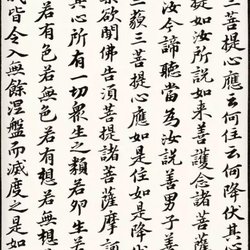 三菩提心應云何住云何降伏其
提如汝所說如來善護念諸菩薩
汝今諦聽當為汝說善男子善
三藐三菩提心應如是住如是降
樂欲聞佛告須菩提諸菩薩摩訶
其心所有一切眾生之類若卵生若
若有色若無色若有想若無想
我皆令入無餘涅槃而滅度之是如